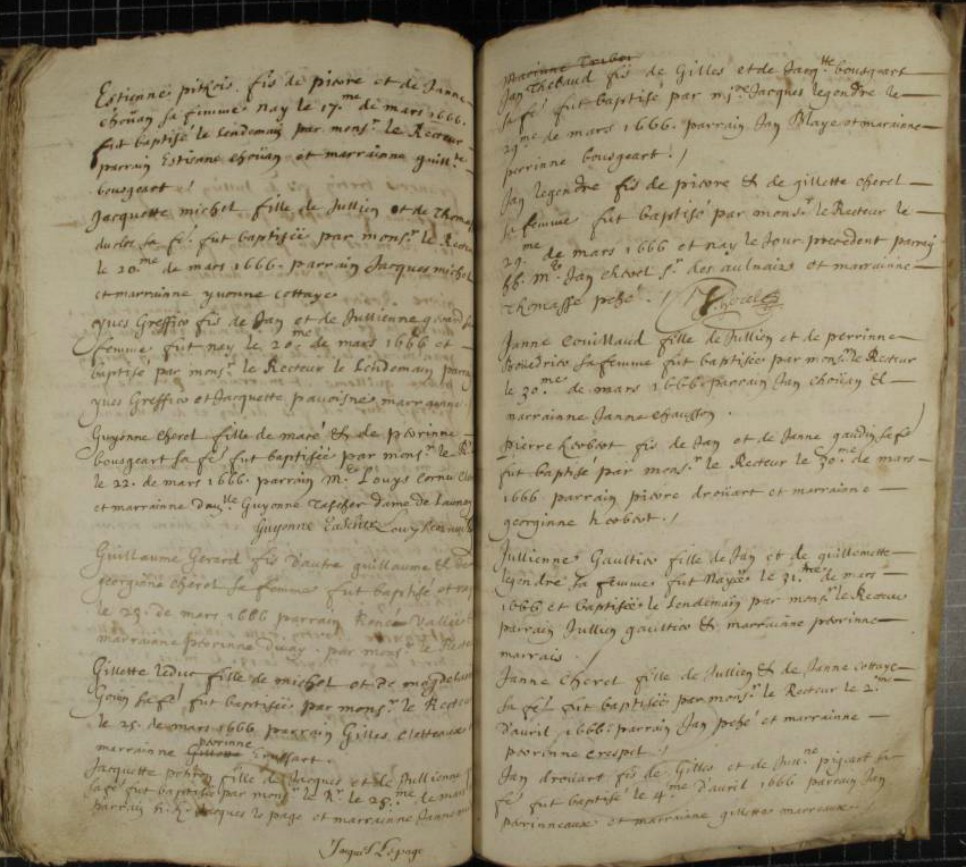 Estienne pitkois. fis de pierre et de Janne
choüan sa femme nay le 17.me de mars 1666.
fut baptisé le lendemain par monsr. le Recteur
parrain Estiene choüan et marrainne guillte.
bousgeart /
Jacquette michel fille de Jullien et de Thomas
duclos sa fe. fut baptisée par monsr. le Recteur
le 20.me de mars 1666. parrain Jacques michel
et marrainne yvonne cottaye
yves Greffier fis de Jan et de Jullienne
femme fut nay le 20.me de mars 1666 et
baptisé par monsr. le Recteur le lendemain parrain
yves Greffier et Jacquette pavoisne marrainne
Guyonne cherel fille de maré & de perrinne
bousgeart sa fe. fut baptisée par monsr. le R
le 22. de mars 1666. parrain Mre. Louys Corne
et marrainne Damlle. Guyonne Tascher dame de Launay
Guyonne Taschere Louys
Guillaume Gerard fis d'autre guillaume & de
georginne cherel sa femme fut baptisé et nay
le 25. de mars 1666 parrain René Vallée
marrainne perrinne Duay. par monsr. le Recteur
Gillette leduc fille de michel et de magdelaine
Goüin sa fe. fut baptisée par monsr. le Recteur
le 25. de mars 1666 parrain Gilles
perrinne
marrainne Gillette Croussart.
Jacquette fille de Jacques et de Jullienne
sa fe. fut baptisée par monsr. le Rr. le 25.me de mars
parrain h.h. Jacques le page et marrainne Janne
Jaques Lepage
Jan Thebaud fis de Gilles et de Jacqtte. bousgeart
sa fe. fut baptisé par mire Jacques legendre le
29.me de mars 1666. parrain Jan Blaye et marainne
perrinne bousgeart. /
Jan legendre fis de pierre & de gillette cherel
sa femme fut baptisé par monsr. le Recteur le
29.me de mars 1666 et nay le Jour precedent parrain
hh. Mre. Jan cherel sr. des aulnais et marrainne
Thomasse pehé. /
Janne Couillaud fille de Jullien et de perrinne
Boudrier sa femme fut baptisée par monsr. le Recteur
le 30.me de mars 1666. parrain Jan choüan &
marrainne Janne chausson.
Pierre herbert fis de Jan et de Janne gaudin sa fe
fut baptisé par monsr. le Recteur le 30.me de mars
1666 parrain pierre droüart et marrainne
georginne herbert. /
Jullienne Gaultier fille de Jan et de guillemette
legendre sa femme fut Nayée le 31.me de mars
1666 et baptisée le lendemain par monsr. le Recteur
parrain Jullien gaultier & marrainne perrinne
marrais. /
Janne Cherel fille de Jullien & de Janne cottaye
sa fe. fut baptisée par monsr. le Recteur le 2.me
d'avril 1666. parrain Jan pehé et marrainne
perrinne crespel. /
Jan droüart fis de Gilles et de Julnne. pigeart sa
fe. fut baptisé le 4.me d'avril 1666 parrain Jan
perinneaux et marrainne gillette marceaux. /